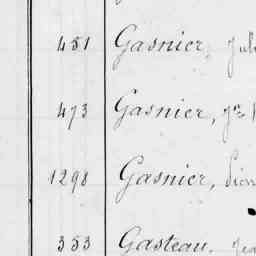 451 Gasnier, Jul
473 Gasnier, Jn
1298 Gasnier, Pier
353 Gasteau, Jea